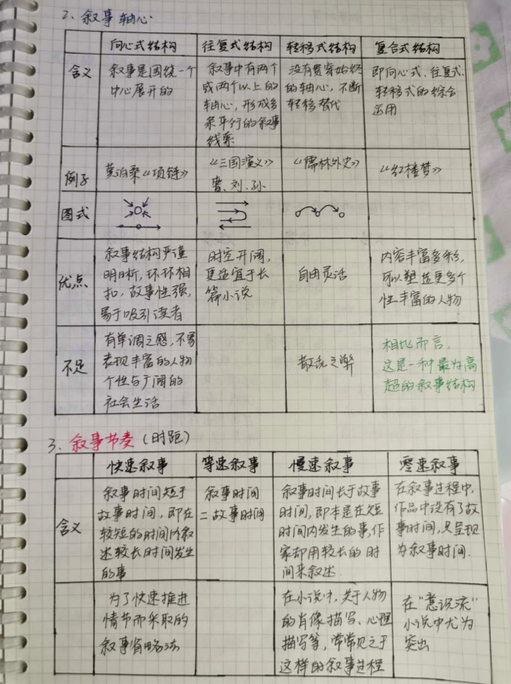 2、叙事轴心
向心式结构 往复式结构 轻移式结构 复合式结构
含义
叙事是围绕一个
中心展开的
叙事中有两个
或两个以上的
轴心,形成多
条平行的叙事
线索
没有贯穿始终
的轴心,不断
轻移替代
即向心式、往复式、
轻移式的综合
运用
例子
莫泊桑《项链》
《三国演义》
曹、刘、孙
《儒林外史》
《红楼梦》
图式
优点
叙事结构严谨
明晰,环环相
扣,故事性强,
易于吸引读者
时空开阔,
更适宜于长
篇小说
自由灵活
内容丰富多彩,
可以塑造更多个
性丰富的人物
不足
有单调之感,不易
表现丰富的人物
个性与广阔的
社会生活
散乱之弊
相比而言,
这是一种最为高
超的叙事结构
3、叙事节奏(时距)
快速叙事 等速叙事 慢速叙事 零速叙事
含义
叙事时间短于
故事时间,即在
较短的时间内叙
述较长时间发生
的事
叙事时间
=故事时间
叙事时间长于故事
时间,即本是在短
时间内发生的事,作
家却用较长的时
间来叙述.
在叙事过程中,
作品中没有了故
事时间,只呈现
为叙事时间.
为了快速推进
情节而采取的
叙事省略法
在小说中,关于人物
的肖像描写、心理
描写等,常常见之于
这样的叙事过程
在"意识流"
小说中尤为
突出